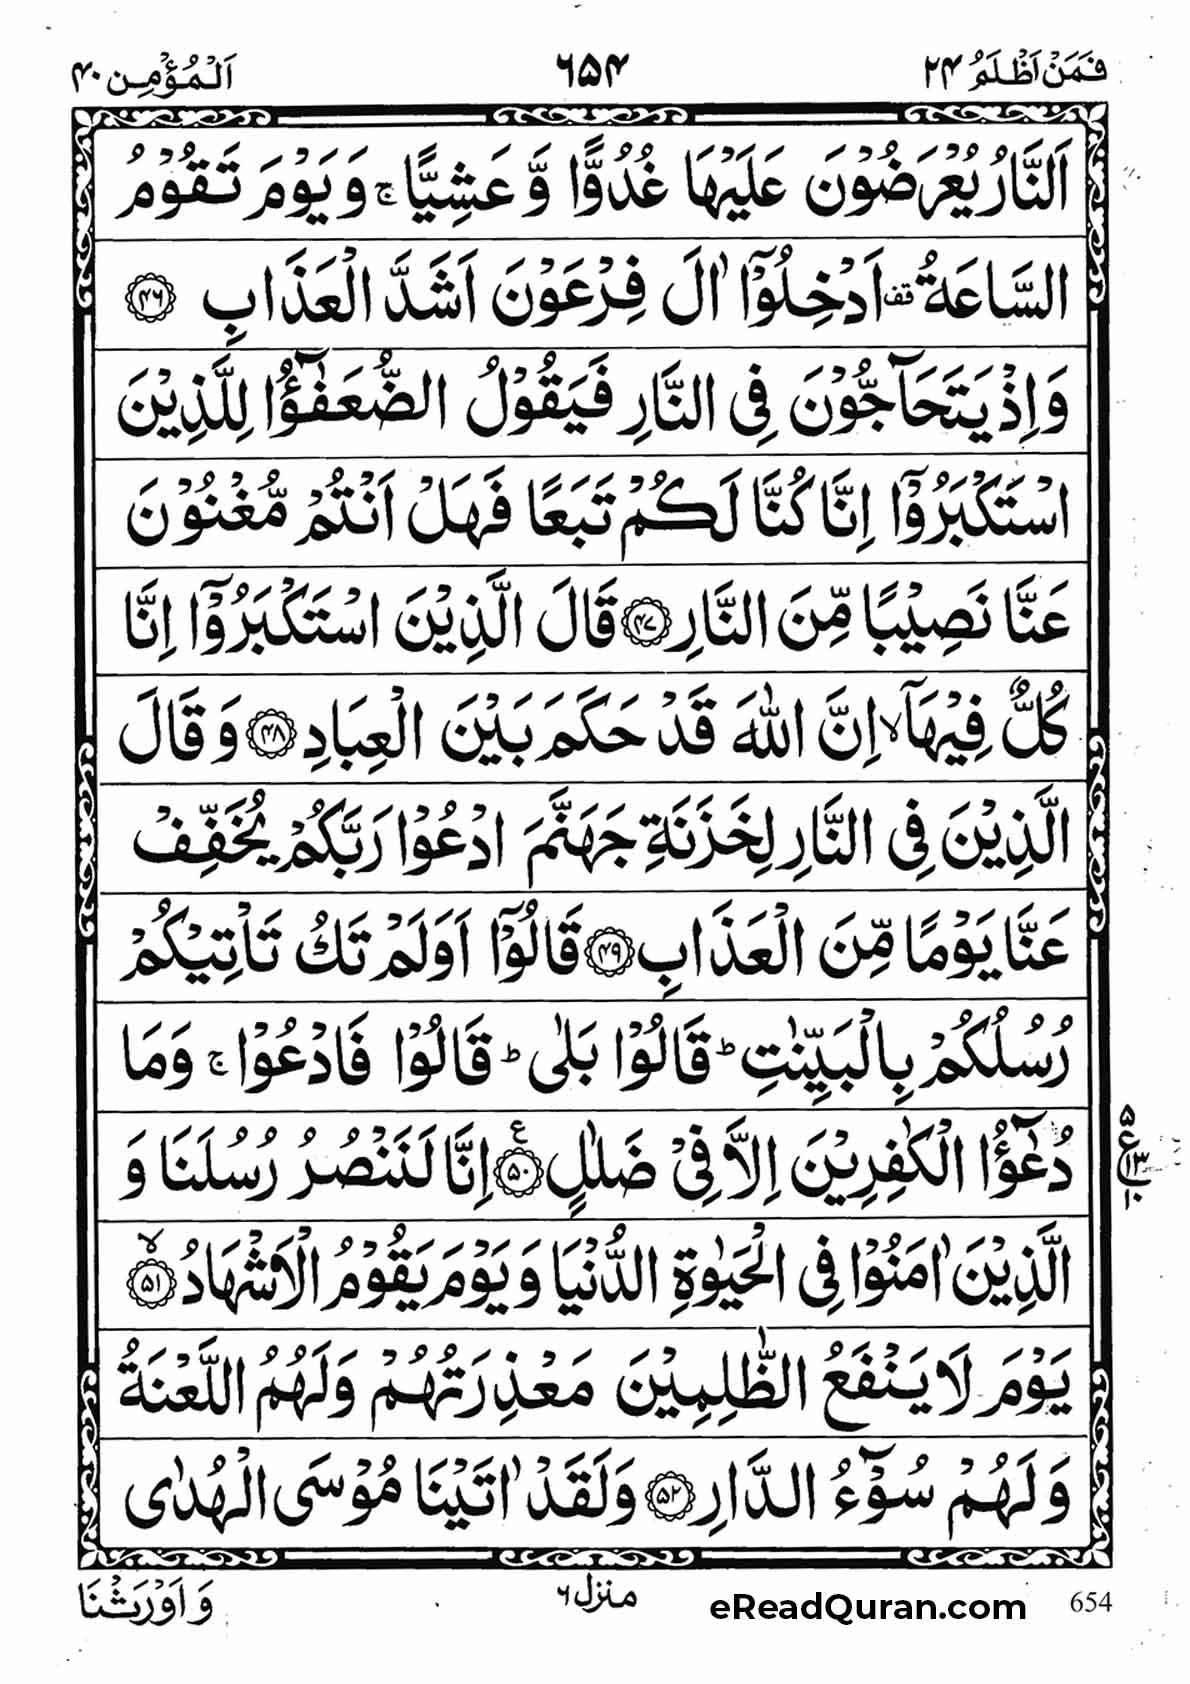 فَمَنْ اَظْلَمُ ۲۴ ۶۵۴ اَلْمُؤْمِن ۴۰
اَلنَّارُ يُعْرَضُوْنَ عَلَيْهَا غُدُوًّا وَّ عَشِيًّا ۚ وَ يَوْمَ تَقُوْمُ
السَّاعَةُ ۟قف اَدْخِلُوْۤا اٰلَ فِرْعَوْنَ اَشَدَّ الْعَذَابِ ﴿۴۶﴾
وَ اِذْ يَتَحَآجُّوْنَ فِى النَّارِ فَيَقُوْلُ الضُّعَفٰٓؤُا لِلَّذِيْنَ
اسْتَكْبَرُوْۤا اِنَّا كُنَّا لَكُمْ تَبَعًا فَهَلْ اَنْتُمْ مُّغْنُوْنَ
عَنَّا نَصِيْبًا مِّنَ النَّارِ ﴿۴۷﴾ قَالَ الَّذِيْنَ اسْتَكْبَرُوْۤا اِنَّا
كُلٌّ فِيْهَاۤ ۙ اِنَّ اللّٰهَ قَدْ حَكَمَ بَيْنَ الْعِبَادِ ﴿۴۸﴾ وَ قَالَ
الَّذِيْنَ فِى النَّارِ لِخَزَنَةِ جَهَنَّمَ ادْعُوْا رَبَّكُمْ يُخَفِّفْ
عَنَّا يَوْمًا مِّنَ الْعَذَابِ ﴿۴۹﴾ قَالُوْۤا اَوَلَمْ تَكُ تَاْتِيْكُمْ
رُسُلُكُمْ بِالْبَيِّنٰتِ ؕ قَالُوْا بَلٰى ؕ قَالُوْا فَادْعُوْا ۚ وَمَا
دُعٰٓؤُا الْكٰفِرِيْنَ اِلَّا فِىْ ضَلٰلٍ ﴿۵۰﴾ ع اِنَّا لَنَنْصُرُ رُسُلَنَا وَ
۵ ع ۱۳ ۱۰
الَّذِيْنَ اٰمَنُوْا فِى الْحَيٰوةِ الدُّنْيَا وَ يَوْمَ يَقُوْمُ الْاَشْهَادُ ﴿۵۱﴾ ۙ
يَوْمَ لَا يَنْفَعُ الظّٰلِمِيْنَ مَعْذِرَتُهُمْ وَلَهُمُ اللَّعْنَةُ
وَ لَهُمْ سُوْٓءُ الدَّارِ ﴿۵۲﴾ وَلَقَدْ اٰتَيْنَا مُوْسَى الْهُدٰى
654 eReadQuran.com منزل ۶ وَ اَوْرَثْنَا